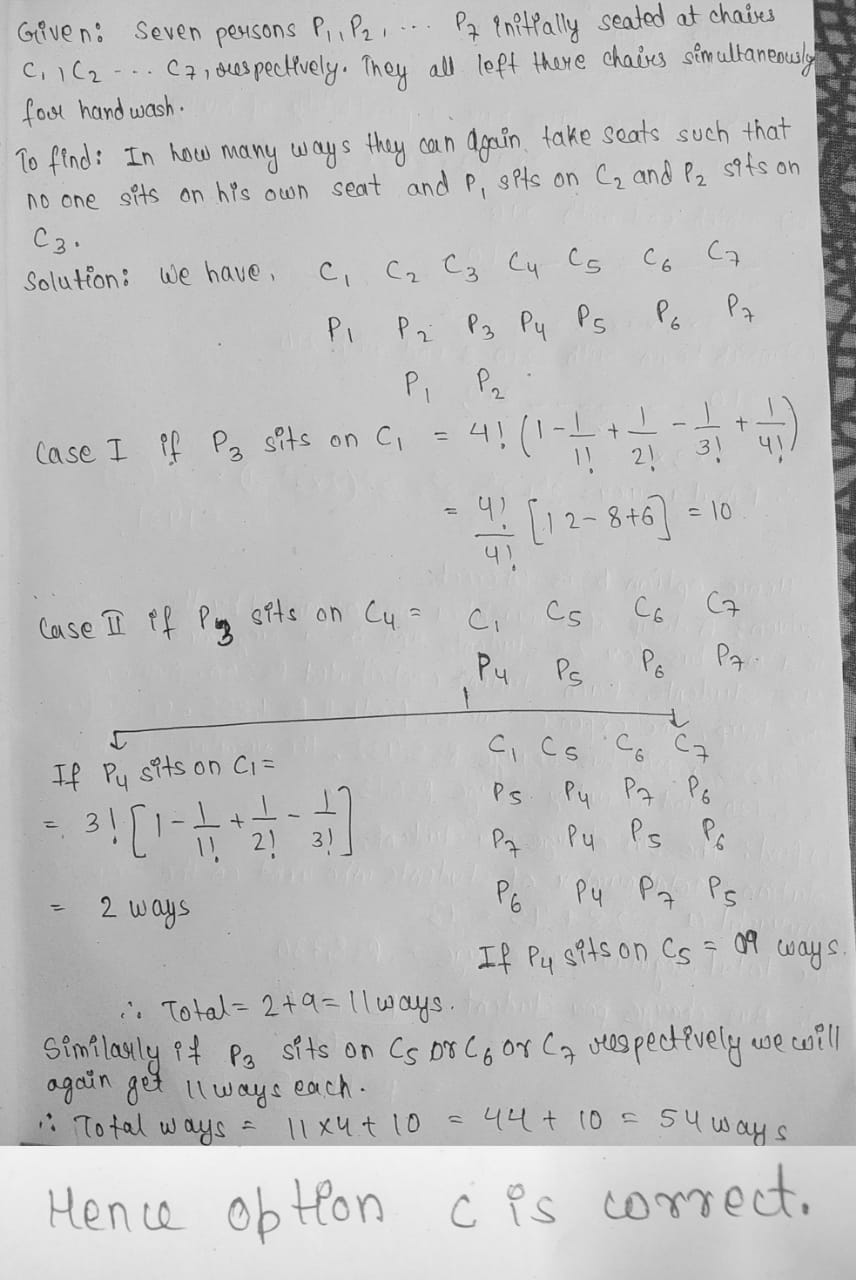 Given: Seven persons P1, P2, ... P7 initially seated at chairs
C1, C2 --.. C7, respectively. They all left there chairs simultaneously
for hand wash.
To find: In how many ways they can again take seats such that
no one sits on his own seat and P1 sits on C2 and P2 sits on
C3.
Solution: We have, C1 C2 C3 C4 C5 C6 C7
P1 P2 P3 P4 P5 P6 P7
P1 P2
Case I if P3 sits on C1 = 4! (1 - 1/1! + 1/2! - 1/3! + 1/4!)
= 4!/4! [12-8+6] = 10
Case II if P3 sits on C4 = C1 C5 C6 C7
P4 P5 P6 P7.
If P4 sits on C1 =
= 3! [1 - 1/1! + 1/2! - 1/3!]
= 2 ways
C1 C5 C6 C7
P5 P4 P7 P6
P7 P4 P5 P6
P6 P4 P7 P5
If P4 sits on C5 = 09 ways.
∴ Total = 2+9 = 11 ways.
Similarly if P3 sits on C5 or C6 or C7 respectively we will
again get 11 ways each.
∴ Total ways = 11x4 + 10 = 44 + 10 = 54 ways
Hence option c is correct.